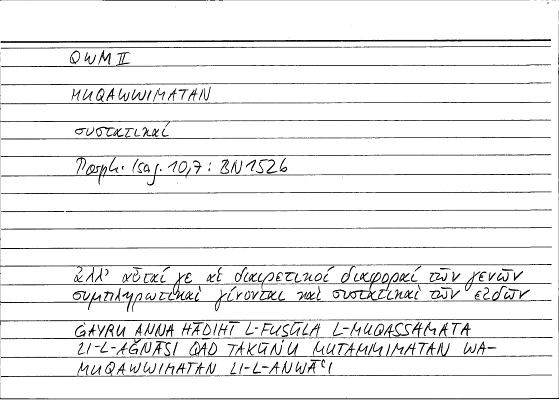 QWM II
MUQAWWIMATAN
συστατικαί
Porph. Isag. 10,7 : BN 152b
ἀλλ' αὗταί γε αἱ διαιρετικαὶ διαφοραὶ τῶν γενῶν
συμπληρωτικαὶ γίνονται καὶ συστατικαὶ τῶν εἰδῶν
ĠAYRU ANNA HĀḎIHĪ L-FUṢŪLA L-MUQASSAMATA
LI-L-AǦNĀSI QAD TAKŪNU MUTAMMIMATAN WA-
MUQAWWIMATAN LI-L-ANWĀʿI